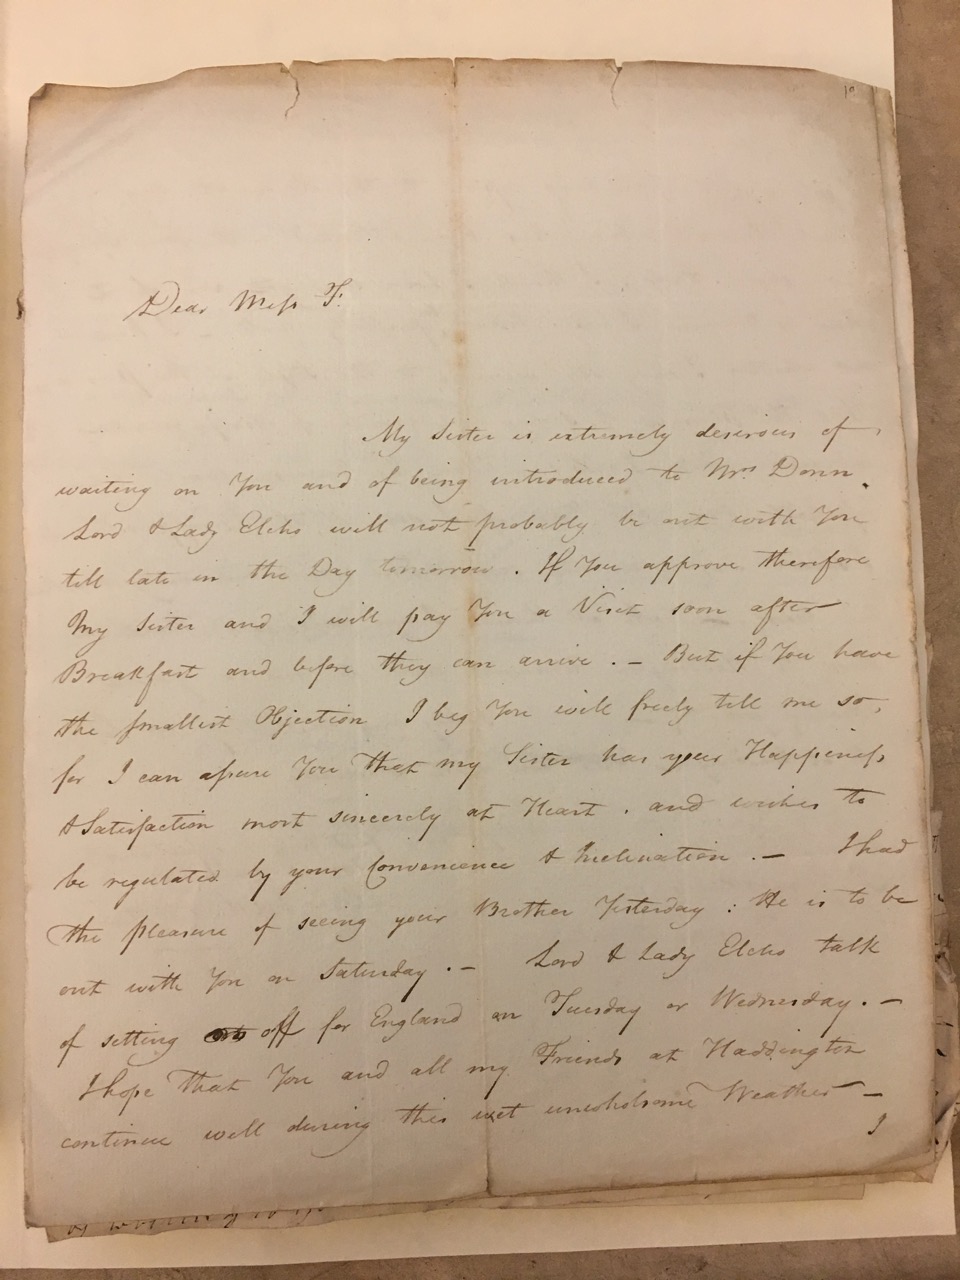 Dear Miss F.
My Sister is extremely desirous of
waiting on You and of being introduced to Mrs. Donn.
Lord & Lady Elcho will not probably be out with You
till late in the Day tomorrow. If You approve therefore
My Sister and I will pay You a Visit soon after
Breakfast and before they can arrive. – But if You have
the smallest Objection I beg You will freely tell me so,
for I can assure You that my Sister has your Happiness
& Satisfaction most sincerely at Heart, and wishes to
be regulated by your Convenience & Inclination. – I had
the pleasure of seeing your Brother Yesterday: He is to be
out with You on Saturday. – Lord & Lady Elcho talk
of setting off for England on Tuesday or Wednesday. –
I hope that You and all my Friends at Haddington
continue well during this wet unwholsome Weather –
I